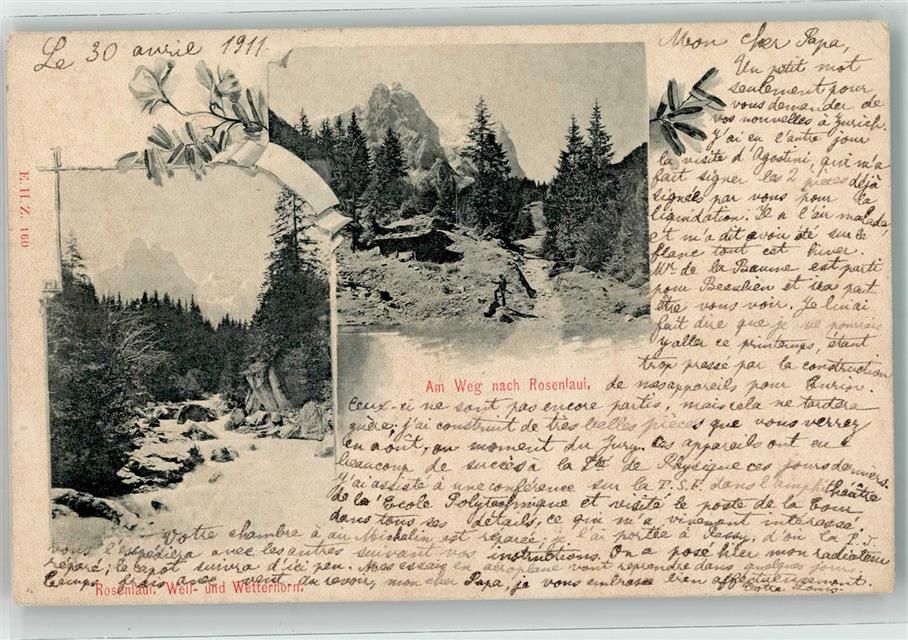 Le 30 avril 1911.
Mon cher Papa,
Un petit mot
seulement pour
vous demander de
vos nouvelles à Zurich.
J'ai eu l'autre jour
la visite d'Agostini, qui m'a
fait signer les 2 pièces déjà
signées par vous pour la
liquidation. Il a l'air malade,
et m'a dit avoir été sur le
flanc tout cet hiver.
de la Baume est parti
pour Beaulieu et ira peut
être vous voir. Je lui ai
fait dire que je ne pourrais
y aller ce printemps, étant
trop pressé par la construction
de nos appareils pour Turin.
Ceux-ci ne sont pas encore partis, mais cela ne tardera
guère; j'ai construit de très belles pièces que vous verrez
en août, au moment du Jury. Ces appareils ont eu
beaucoup de succès à la Sté de Physique ces jours derniers.
J'ai assisté à une conférence sur la T.S.F. dans l'amphithéâtre
de la Ecole Polytechnique et visité le poste de la Tour
dans tous ses détails, ce qui m'a vivement intéressé.
Votre chambre à air Michelin est réparée; je l'ai portée à Passy, d'où la
vous l'expédiera avec les autres suivant vos instructions. On a posé hier mon radiateur
réparé; le capot suivra d'ici peu. Mes essais en aéroplane vont reprendre dans quelques jours,
temps Au revoir, mon cher Papa, je vous embrasse bien affectueusement.
Votre Louis.
E. H. Z. 160
Am Weg nach Rosenlaui.
Rosenlaui. Well- und Wetterhorn.